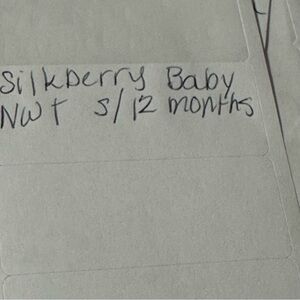 Silkberry Baby
NWT S/12 months